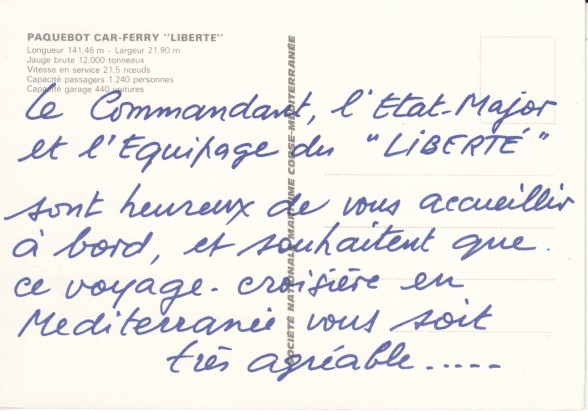 PAQUEBOT CAR-FERRY "LIBERTE"
Longueur 141,46 m - Largeur 21,90 m
Jauge brute 12.000 tonneaux
Vitesse en service 21,5 nœuds
Capacité passagers 1.240 personnes
Capacité garage 440 voitures
Le Commandant, l'Etat-Major
et l'Equipage du "LIBERTÉ"
sont heureux de vous accueillir
à bord, et souhaitent que
ce voyage-croisière en
Mediterranée vous soit
très agréable.....
SOCIÉTÉ NATIONALE MARITIME CORSE-MÉDITERRANÉE